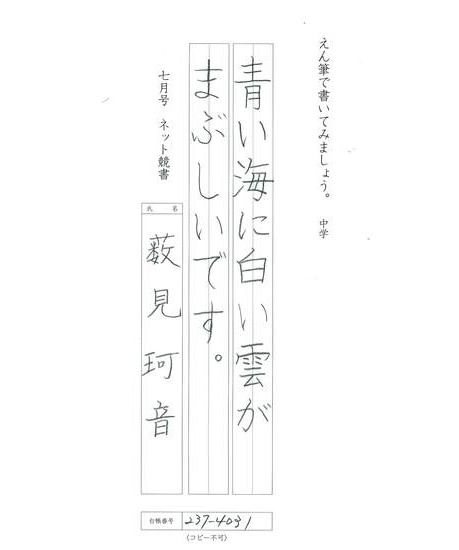 えん筆で書いてみましょう。 中学
青い海に白い雲が
まぶしいです。
七月号 ネット競書
氏 名
薮見珂音
台帳番号 237-4031
(コピー不可)